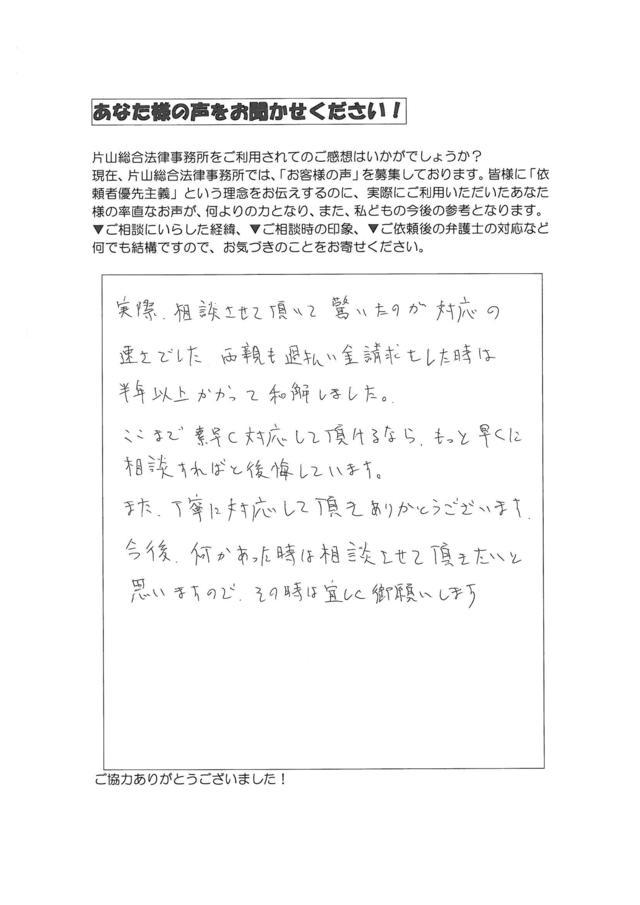 あなた様の声をお聞かせください！
片山総合法律事務所をご利用されてのご感想はいかがでしょうか？
現在、片山総合法律事務所では、「お客様の声」を募集しております。皆様に「依
頼者優先主義」という理念をお伝えするのに、実際にご利用いただいたあなた
様の率直なお声が、何よりの力となり、また、私どもの今後の参考となります。
▼ご相談にいらした経緯、▼ご相談時の印象、▼ご依頼後の弁護士の対応など
何でも結構ですので、お気づきのことをお寄せください。
実際、相談させて頂いて驚いたのが対応の
速さでした 両親も過払い金請求をした時は
半年以上かかって和解しました。
ここまで素早く対応して頂けるなら、もっと早くに
相談すればと後悔しています。
また、丁寧に対応して頂きありがとうございます.
今後、何かあった時は相談させて頂きたいと
思いますので、その時は宜しく御願いします
ご協力ありがとうございました！